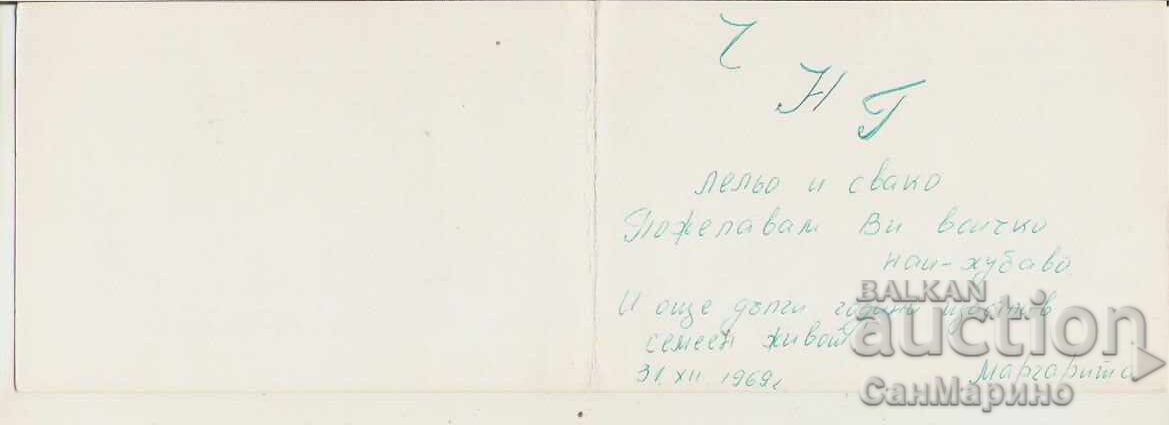 Ч
Н
Г
лельо и свако
Пожелавам Ви всичко
най-хубаво
И още дълги години щастлив
семеен живот
31. XII. 1969 г
Маргарита
BALKAN
auction
СанМарино